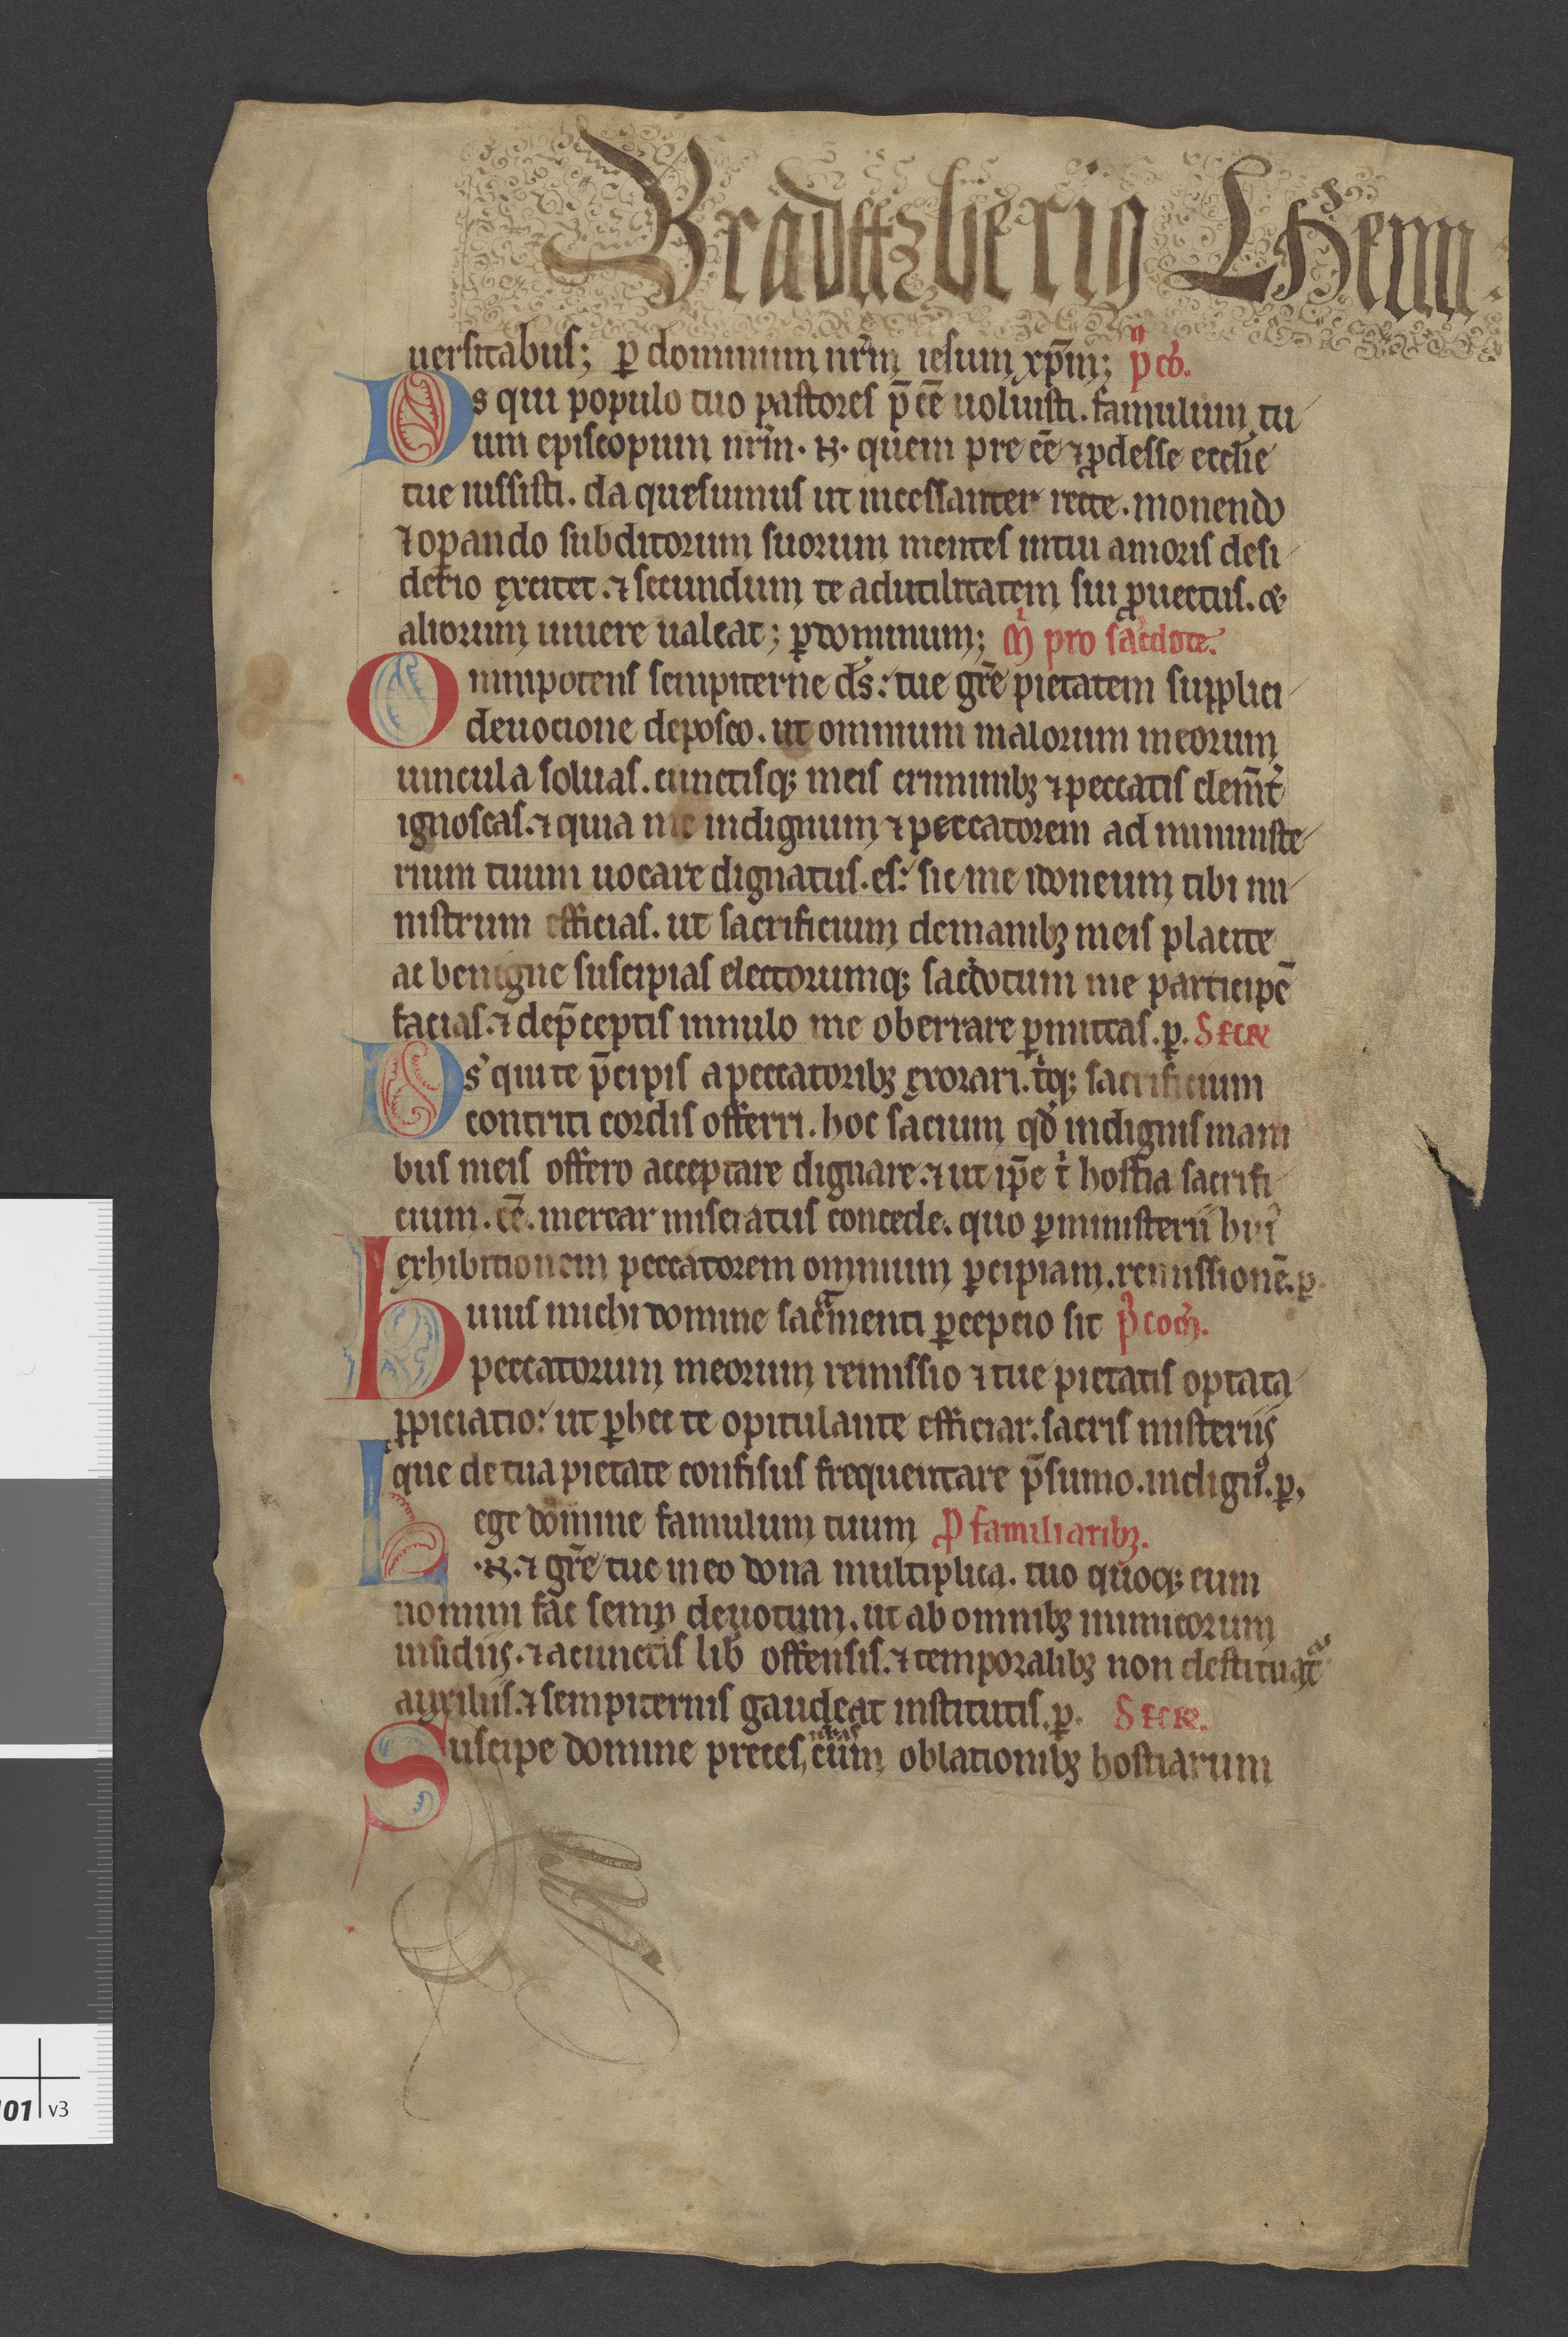 Bradttzberig LHenn
uersitabus; ꝑ dominum nr̄m iesum xp̄m; p̄ cō.
Ds qui populo tuo pastores p̄ eē uoluisti. famulum tu
um episcopum nr̄m. N. quem pre eē ⁊ ꝓdesse eccl̄ie
tue iussisti. da quesumus ut incessanter recte. monendo
⁊ oꝑando subditorum suorum mentes intiu amoris desi
derio excitet. ⁊ secundum te ad utilitatem sui ꝓuectus. &
aliorum uiuere ualeat; ꝑ dominum; pro sac̄dote.
Omnipotens sempiterne ds̄: tue gr̄e pietatem supplici
deuocione deposco. ut omnium malorum meorum
uincula soluas. cunctisqꝫ meis criminibꝫ ⁊ peccatis clem̄t̄
ignoscas. ⁊ quia me indignum ⁊ peccatorem ad ministe
rium tuum uocare dignatus. es: sic me idoneum tibi mi
nistrum efficias. ut sacrificium de manibꝫ meis placite
ac benigne suscipias electorumqꝫ sac̄dotum me participē
facias. ⁊ de p̄ceptis in nulo me oberrare ꝑmittas. ꝑ. Secre
Ds qui te p̄cipis a peccatoribꝫ exorari. t̄qꝫ sacrificium
contriti cordis offerri. hoc sacium qd̄ indignis mani
bus meis offero acceptare dignare. ⁊ ut ip̄e t̄ hostia sacrifi
cium. eē. merear miseratus concede. quo ꝑ ministerii hui᾿
exhibitionem peccatorem omnium ꝑcipiam. remissionē. ꝑ
huius michi domine sac̄menti ꝑcepcio sit p̄ com̄.
peccatorum meorum remissio ⁊ tue pietatis optata
ꝓpiciatio: ut ꝑ hec te opitulante efficiar. sacris misteriis
que de tua pietate confisus frequentare p̄sumo. indign᾿. ꝑ.
Lege domine famulum tuum ꝓ familiaribꝫ.
.N. ⁊ gr̄e tue in eo dona multiplica. tuo quoqꝫ eum
nomini fac semꝑ deuotum. ut ab omnibꝫ inimicorum
insidiis. ⁊ a cunctis lib̄ offensis. ⁊ temporalibꝫ non destituat᾿
auxiliis. ⁊ sempiternis gaudeat institutis. ꝑ. Secre.
Suscipe domine preces, nr̄as cum oblationibꝫ hostiarum